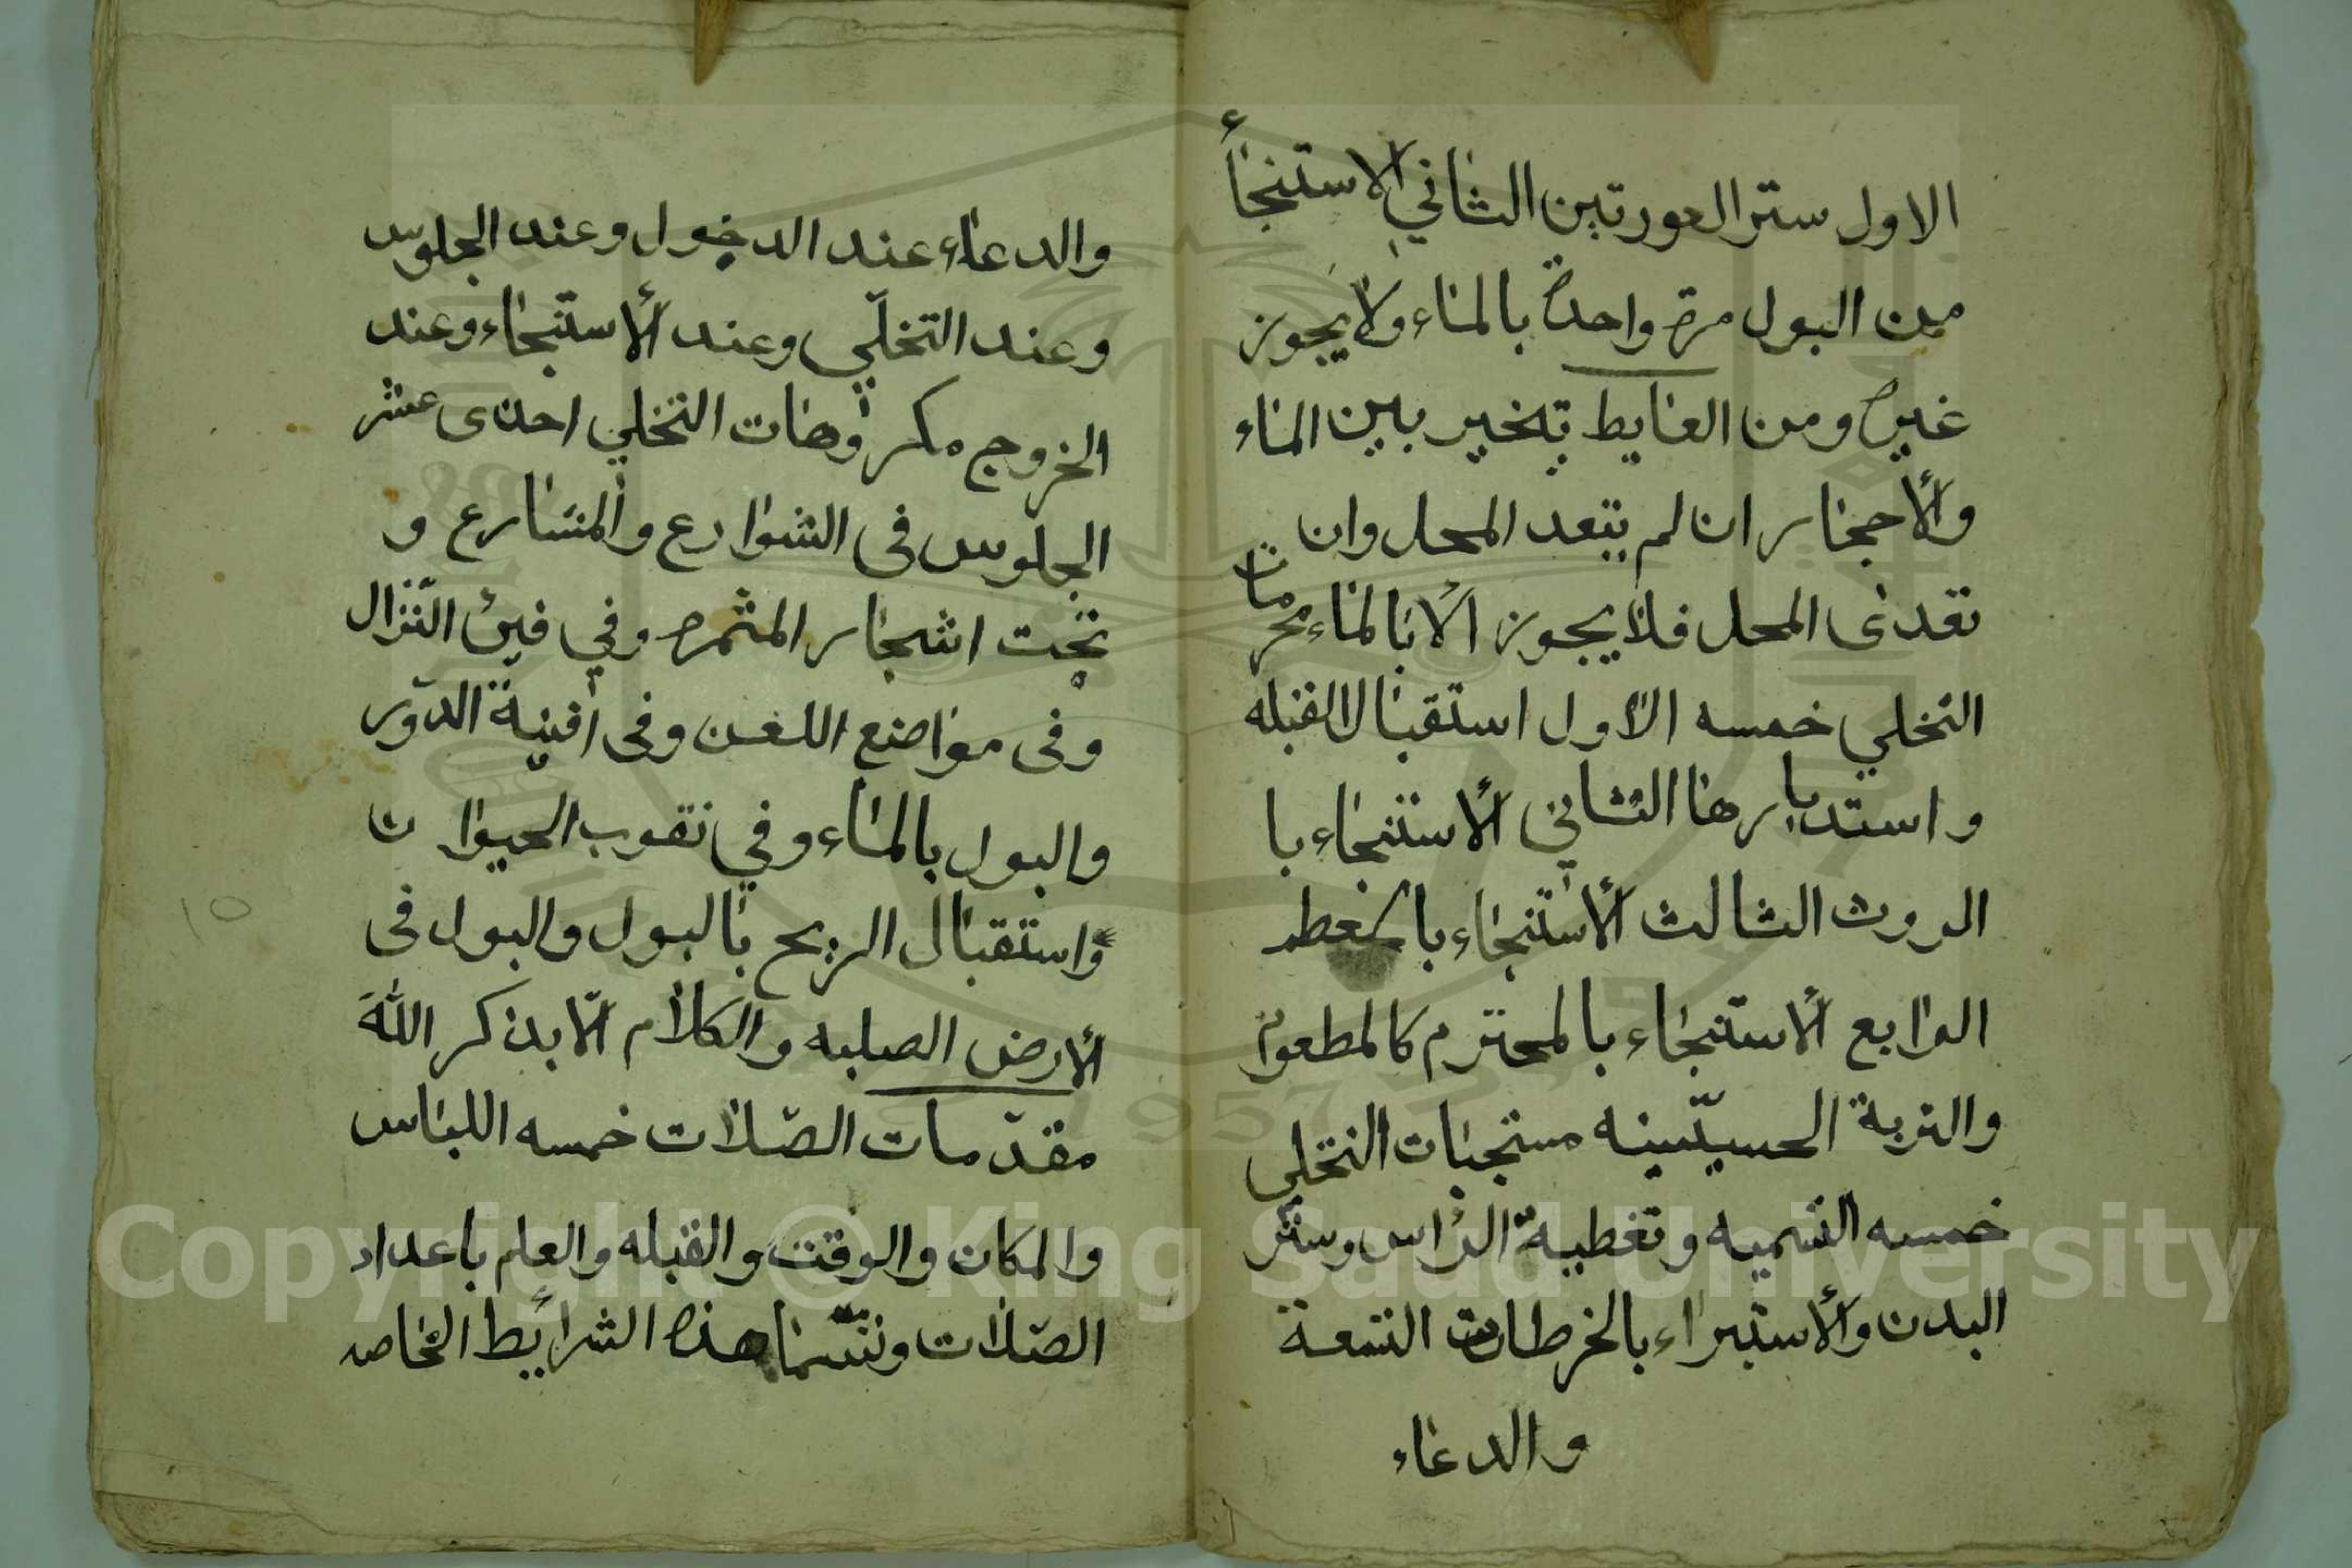 الاول ستر العورتين الثاني الاستنجأ
من البول مرة واحدة بالماء ولا يجوز
غيره ومن الغايط تخير بين الماء
والأحجار ان لم يتعد المحل وان
تعدى المحل فلا يجوز الا بالماء محرمات
التخلي خمسه الاول استقبال القبله
واستدبارها الثاني الأستنجاء با
الروث الثالث الأستنجاء بالعظم
الرابع الأستنجاء بالمحترم كالمطعوم
والتربة الحسينيه مستحبات التخلي
خمسه التسميه وتغطية الراس وستر
البدن والأستبراء بالخرطات التسعة
والدعاء
والدعاء عند الدخول وعند الجلوس
وعند التخلّي وعند الأستنجاء وعند
الخروج مكروهات التخلي احدى عشر
الجلوس فى الشوارع والمشارع و
تحت اشجار المثمره وفي فيئ النّزال
وفى مواضع اللعن وفى أفنية الدّور
والبول بالماء وفي ثقوب الحيوان
واستقبال الريح بالبول والبول فى
الأرض الصلبه والكلام الّا بذكر اللّه
مقدّمات الصّلات خمسه اللباس
والمكان والوقت والقبله والعلم باعداد
الصّلات و هذه الشرائط الخاصه
١٥
Copyright © King Saud University
1957